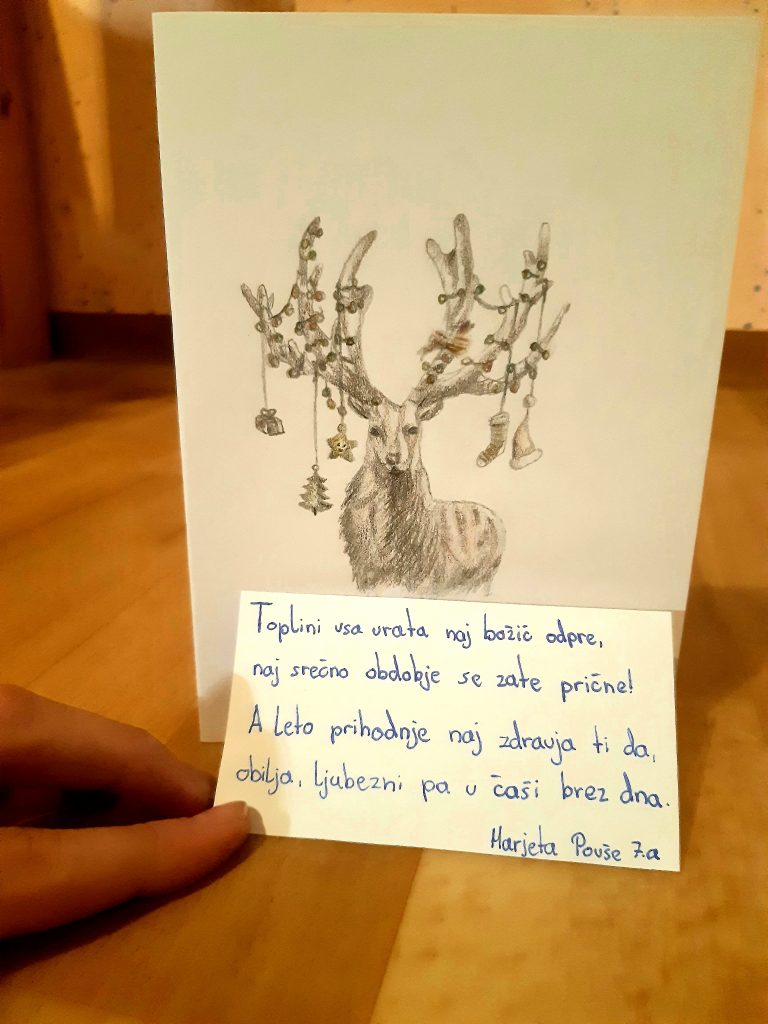 Toplini vsa vrata naj božič odpre,
naj srečno obdobje se zate prične!
A leto prihodnje naj zdravja ti da,
obilja, ljubezni pa v čaši brez dna.
Marjeta Pouše 7.a